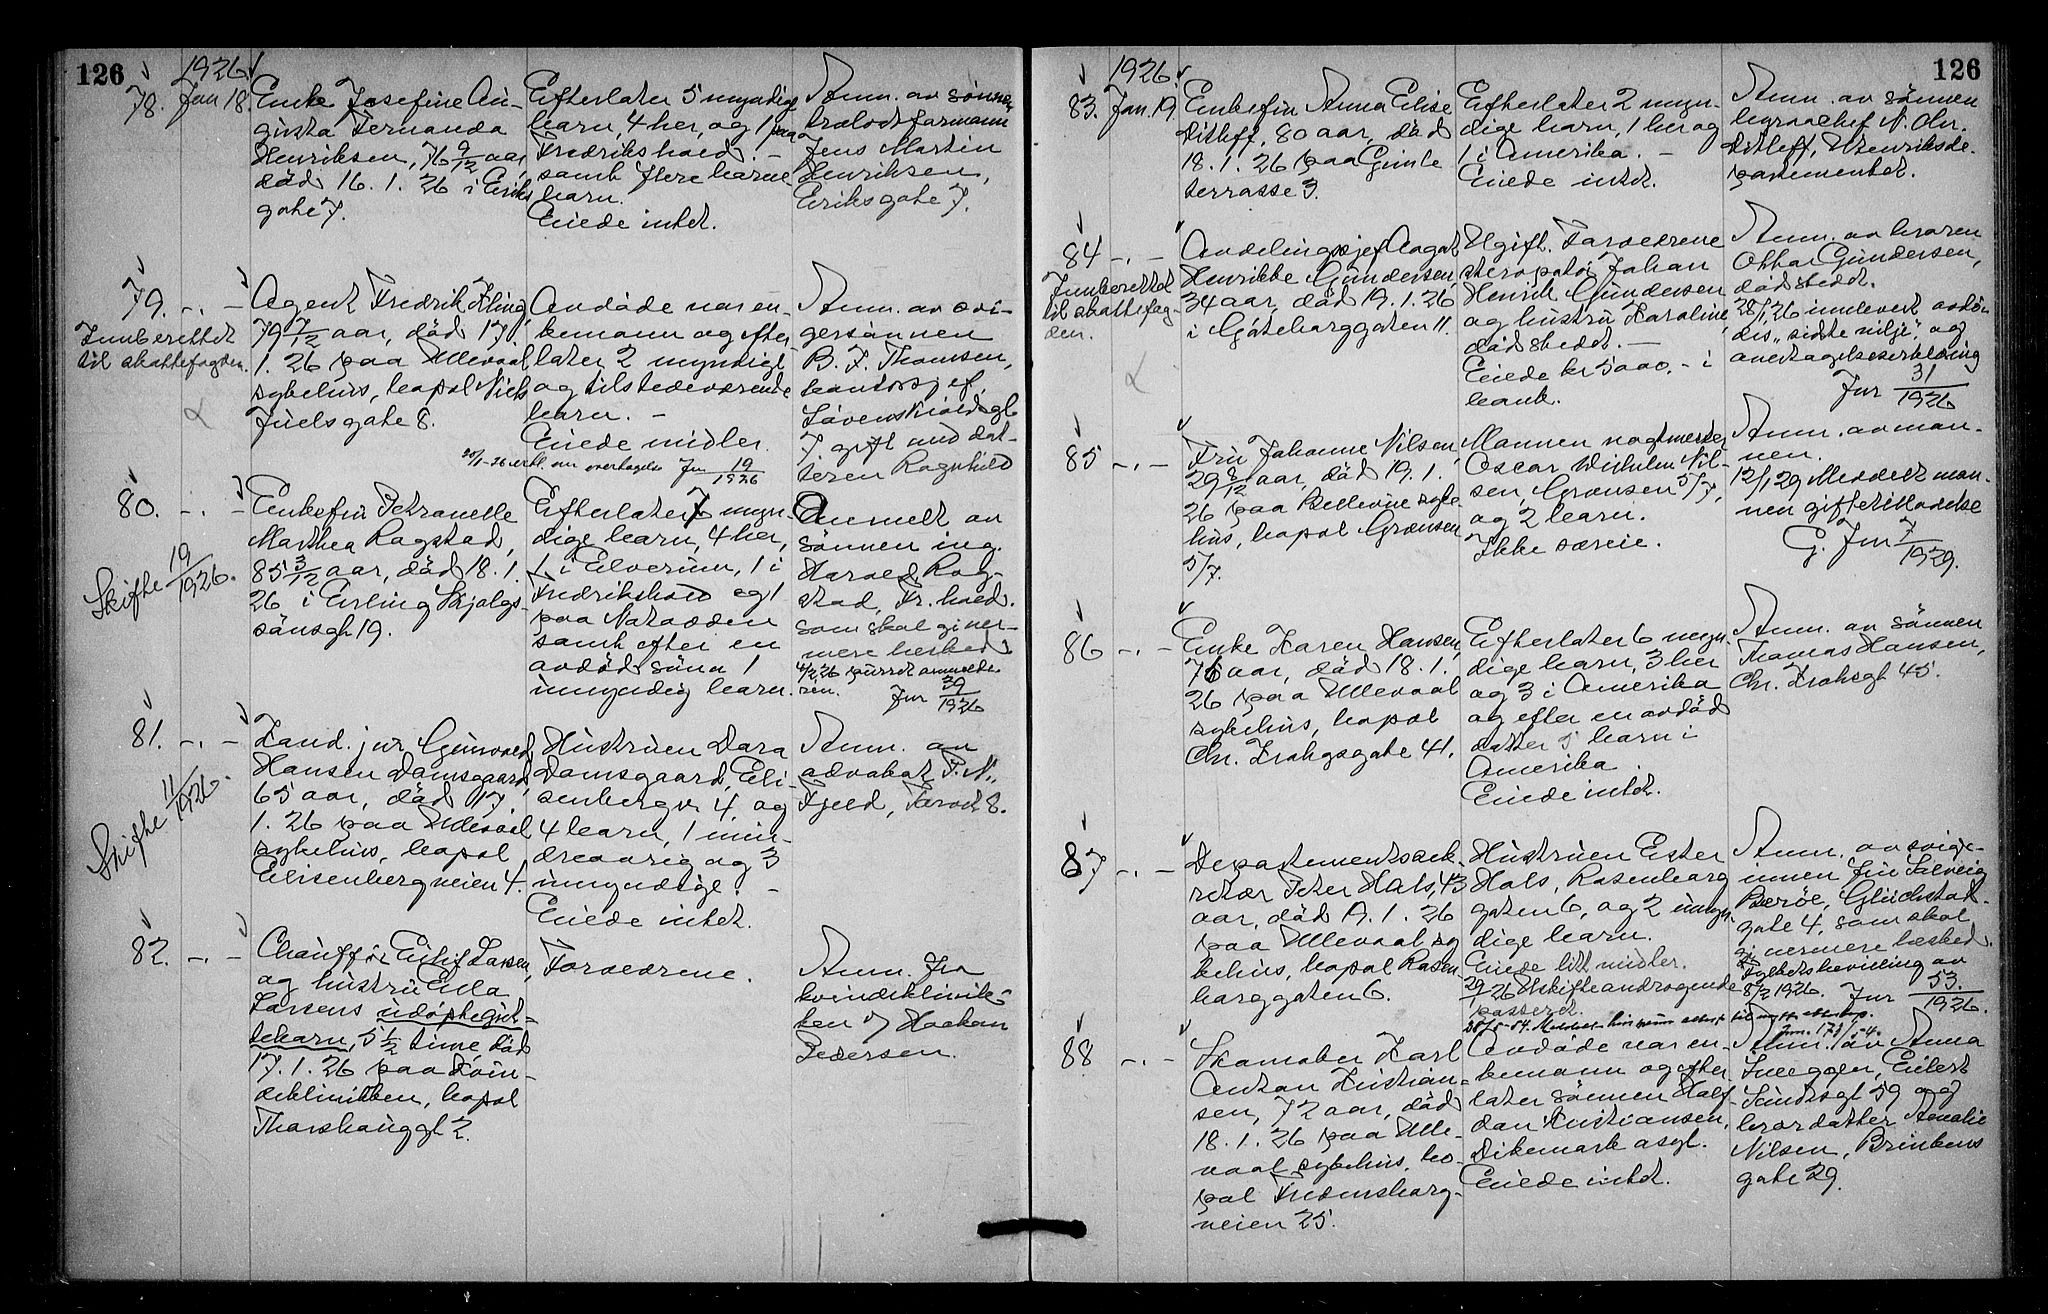 126
1926.
78. Jan 18.
Enke Josefine Au-
gusta Fernanda
Henriksen, 76 9/12 aar,
død 16. 1. 26 i Eriks
gate 7.
Efterlater 5 myndige
barn, 4 her, og 1 paa
Fredrikshald. -
samt flere barne-
barn.
Eiede intet.
Anm. av sønnen
Jens Martin
Henriksen,
Eriksgate 7.
79. -.-
Innberettet
til skattefogden.
Agent Fredrik Kling,
79 7/12 aar, død 17.
1. 26 paa Ullevaal
sykehus, bopæl Niels
Juels gate 8.
Avdøde var en-
kemann og efter-
later 2 myndige
og tilstedeværende
barn. -
Eiede midler.
20/1-26 erkl. om overtagelse Jnr 19/1926
Anm. av svi-
gersønnen
B. F. Thomsen,
kontorsjef,
Løvenskioldsgt
7, gift med dat-
teren Ragnhild
80. -.-
Skifte 19/1926.
Enkefru Petronelle
Marthea Rogstad,
85 3/12 aar, død 18. 1.
26 i Erling Skjalgs-
sønsgt 19.
Efterlater 7 myn-
dige barn, 4 her,
1 i Elverum, 1 i
Fredrikshald og 1
paa Notodden
samt efter en
avdød sønn 1
umyndig barn.
Anmelt av
sønnen ing.
Harald Rog-
stad, Fr.hald.
som skal gi nær-
mere besked
4/2 26 purret anmelde-
ren. Jnr 39/1926
81. -.-
Skifte 11/1926.
Kand. jur Gunvald
Hansen Damsgaard,
65 aar, død 17.
1. 26 paa Ullevaal
sykehus, bopæl
Eilisenbergveien 4.
Hustruen Dara
Damsgaard, Eili-
senbergv. 4, og
4 barn, 1 min-
dreaarig og 3
umyndige. -
Eiede intet.
Anm. av
advokat T. N.
Fjeld, Torvet 8.
82. -.-
Chauffør Eilif Larsen,
og hustru Ella
Larsens udøpte gut-
tebarn, 5 1/2 time, død
17. 1. 26 paa Kvin-
deklinikken, bopæl
Thorshauggt 2.
Forældrene.
Anm. fra
kvindeklinik-
ken v/ Haakon
Pedersen.
126
1926.
83. Jan. 19.
Enkefru Anna Elise
Ditleff, 80 aar, død
18. 1. 26 paa Gimle
terrasse 3.
Efterlater 2 myn-
dige barn, 1 her og
1 i Amerika. -
Eiede intet.
Anm. av sønnen
byraachef N. Chr.
Ditleff, Utenriksde-
partementet.
84 -.-
Innberettet
til skattefog-
den.
Avdelingssjef Aagot
Henrikke Gundersen,
34 aar, død 19. 1. 26
i Göteborggaten 11.
Ugift. Forældrene
Johan
Henrik Gundersen
og hustru Karoline,
dødstedet. -
Eiede kr 5000.- i
bank.
Anm. av broren
Otthar Gundersen,
dødstedet.
28/1 26 innlevert avdø-
des „sidste vilje" og
overtagelseserklæring
Jnr 31/1926
85 -.-
Fru Johanne Nilsen,
29 8/12 aar, død 19. 1.
26 paa Bellevue syke-
hus, bopæl Grænsen
5/7.
Mannen vagtmester
Oscar Wilhelm Nil-
sen, Grænsen 5/7,
og 2 barn.
Ikke særeie.
Anm. av man-
nen.
12/1 29 Meddelt man-
nen giftetilladelse
G. Jnr 7/1929.
86 -.-
Enke Karen Hansen,
76 aar, død 18. 1.
26 paa Ullevaal
sykehus, bopæl
Chr. Krohgsgate 41.
Efterlater 6 myn-
dige barn, 3 her
og 3 i Amerika
og efter en avdød
datter 5 barn i
Amerika.
Eiede intet.
Anm. av sønnen
Thomas Hansen,
Chr. Krohsgt 45.
87 -.-
Departementssek-
retær Peter Hals, 43
aar, død 19. 1. 26
paa Ullevaal sy-
kehus, bopæl Rosen-
borggaten 6.
Hustruen Ester
Hals, Rosenborg
gaten 6, og 2 umyn-
dige barn.
Eiede litt midler.
29/1 26 Uskifteandragende
passeret.
Anm. av svige-
rinnen fru Solveig
Berøe, Glückstad-
gate 4, som skal
gi nærmere besked.
Uskiftebevilling av
8/2 1926. Jnr 53/1926.
88 -.-
Skomaker Karl
Anton Kristian-
sen, 72 aar, død
18. 1. 26 paa Ulle-
vaal sykehus, bo-
pæl Fredensborg-
veien 25.
Avdøde var en-
kemann og efter-
later sønnen Half-
dan Kristiansen,
Dikemark asyl.
Eiede intet.
Anm. av Anna
Sneeggen, Eilert
Sundtsgt 59 og
brordatter Amalie
Nilsen, Brinkens
gate 29.